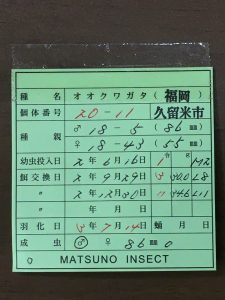 種名 オオクワガタ(福岡)
個体番号 20-11 久留米市
種親 ♂ 18-5 (86㎜)
♀ 18-43 (55㎜)
幼虫投入日 2年6月16日 1
餌交換日 2年9月29日 30.0 L8
〃 2年12月30日 34.6 L11
〃 年 月 日
羽化日 3年7月14日 蛹 月 日
成虫 ♂ ♀ 86㎜0
MATSUNO INSECT